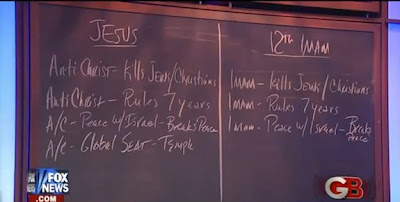 JESUS
Anti Christ = Kills Jews/Christians
Anti Christ - Rules 7 years
A/C - Peace w/ Israel - Breaks Peace
A/C - Global Seat - Temple
12th Imam
Imam - Kills Jews/Christians
Imam - Rules 7 years
Imam - Peace w/ Israel - Breaks
Peace
FOX
NEWS
.com
GB